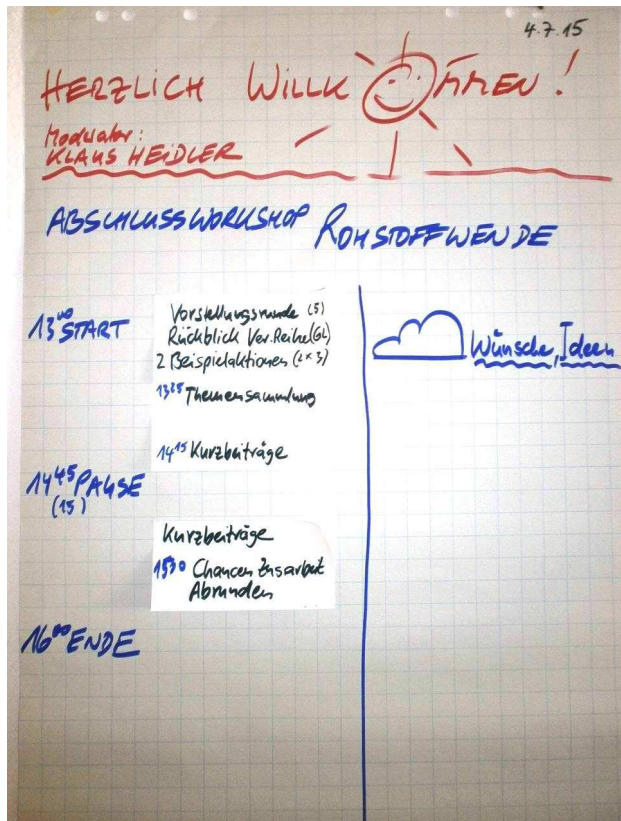 4.7.15
HERZLICH WILLKOMMEN!
Moderator:
KLAUS HEIDLER
ABSCHLUSSWORKSHOP ROHSTOFFWENDE
13⁰⁰ START
Vorstellungsrunde (5)
Rückblick Ver.Reihe (GL)
2 Beispielaktionen (2×3)
13²⁵ Themensammlung
14¹⁵ Kurzbeiträge
14⁴⁵ PAUSE
(15)
Kurzbeiträge
15³⁰ Chancen Zusarbeit
Abrunden
16⁰⁰ ENDE
Wünsche, Ideen